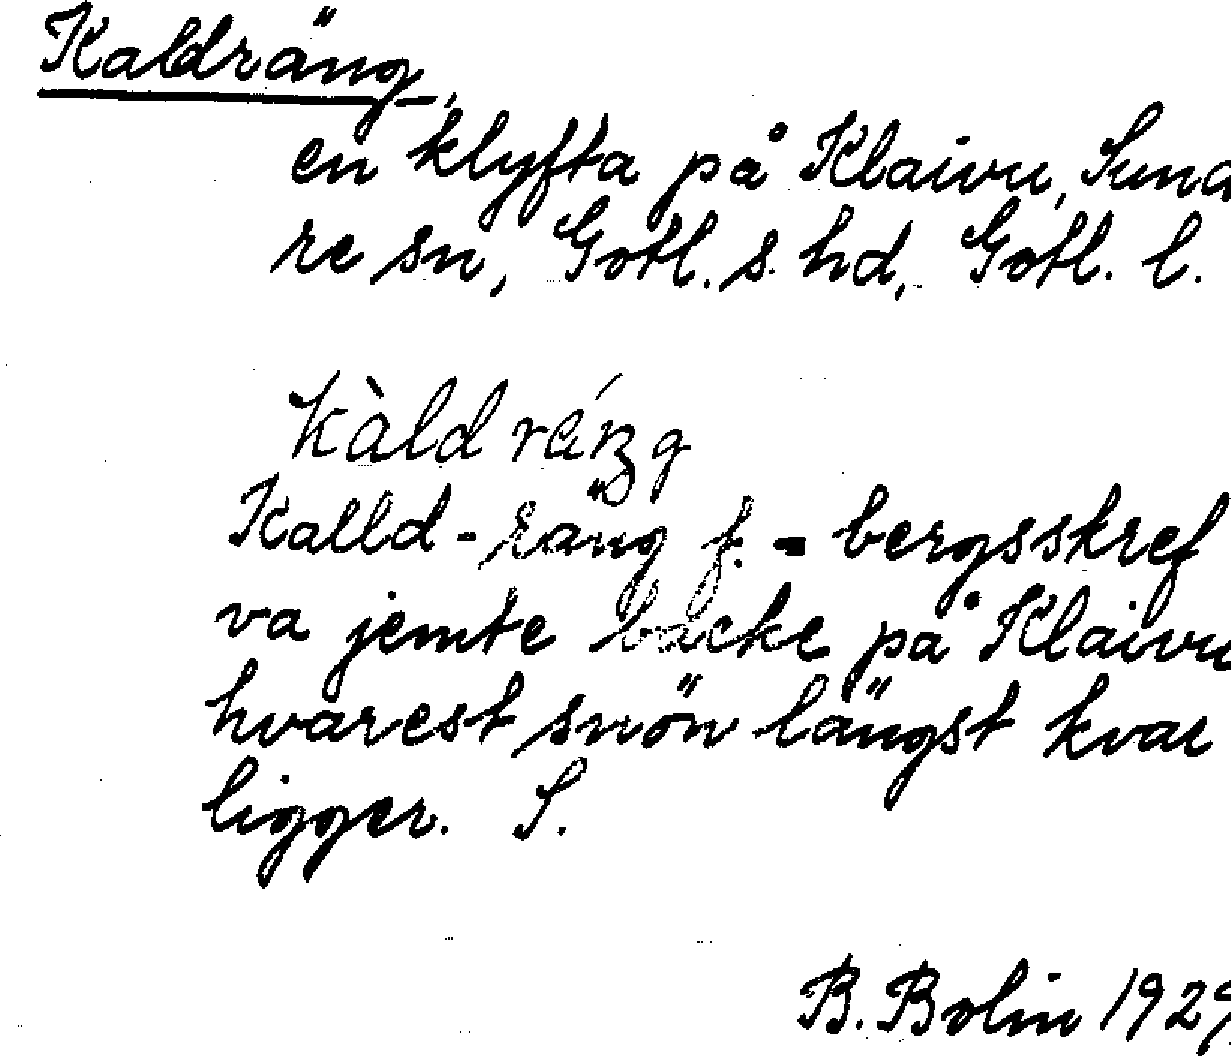 Kaldräng,
en klyfta på Klaivu, Sund
re sn, Gotl. s. hd, Gotl. l.
kàld
Kalld-räng f. = bergsskref
va jemte backe på Klaivu
hvarest snön längst kvar
ligger. S.
B. Bolin 1929